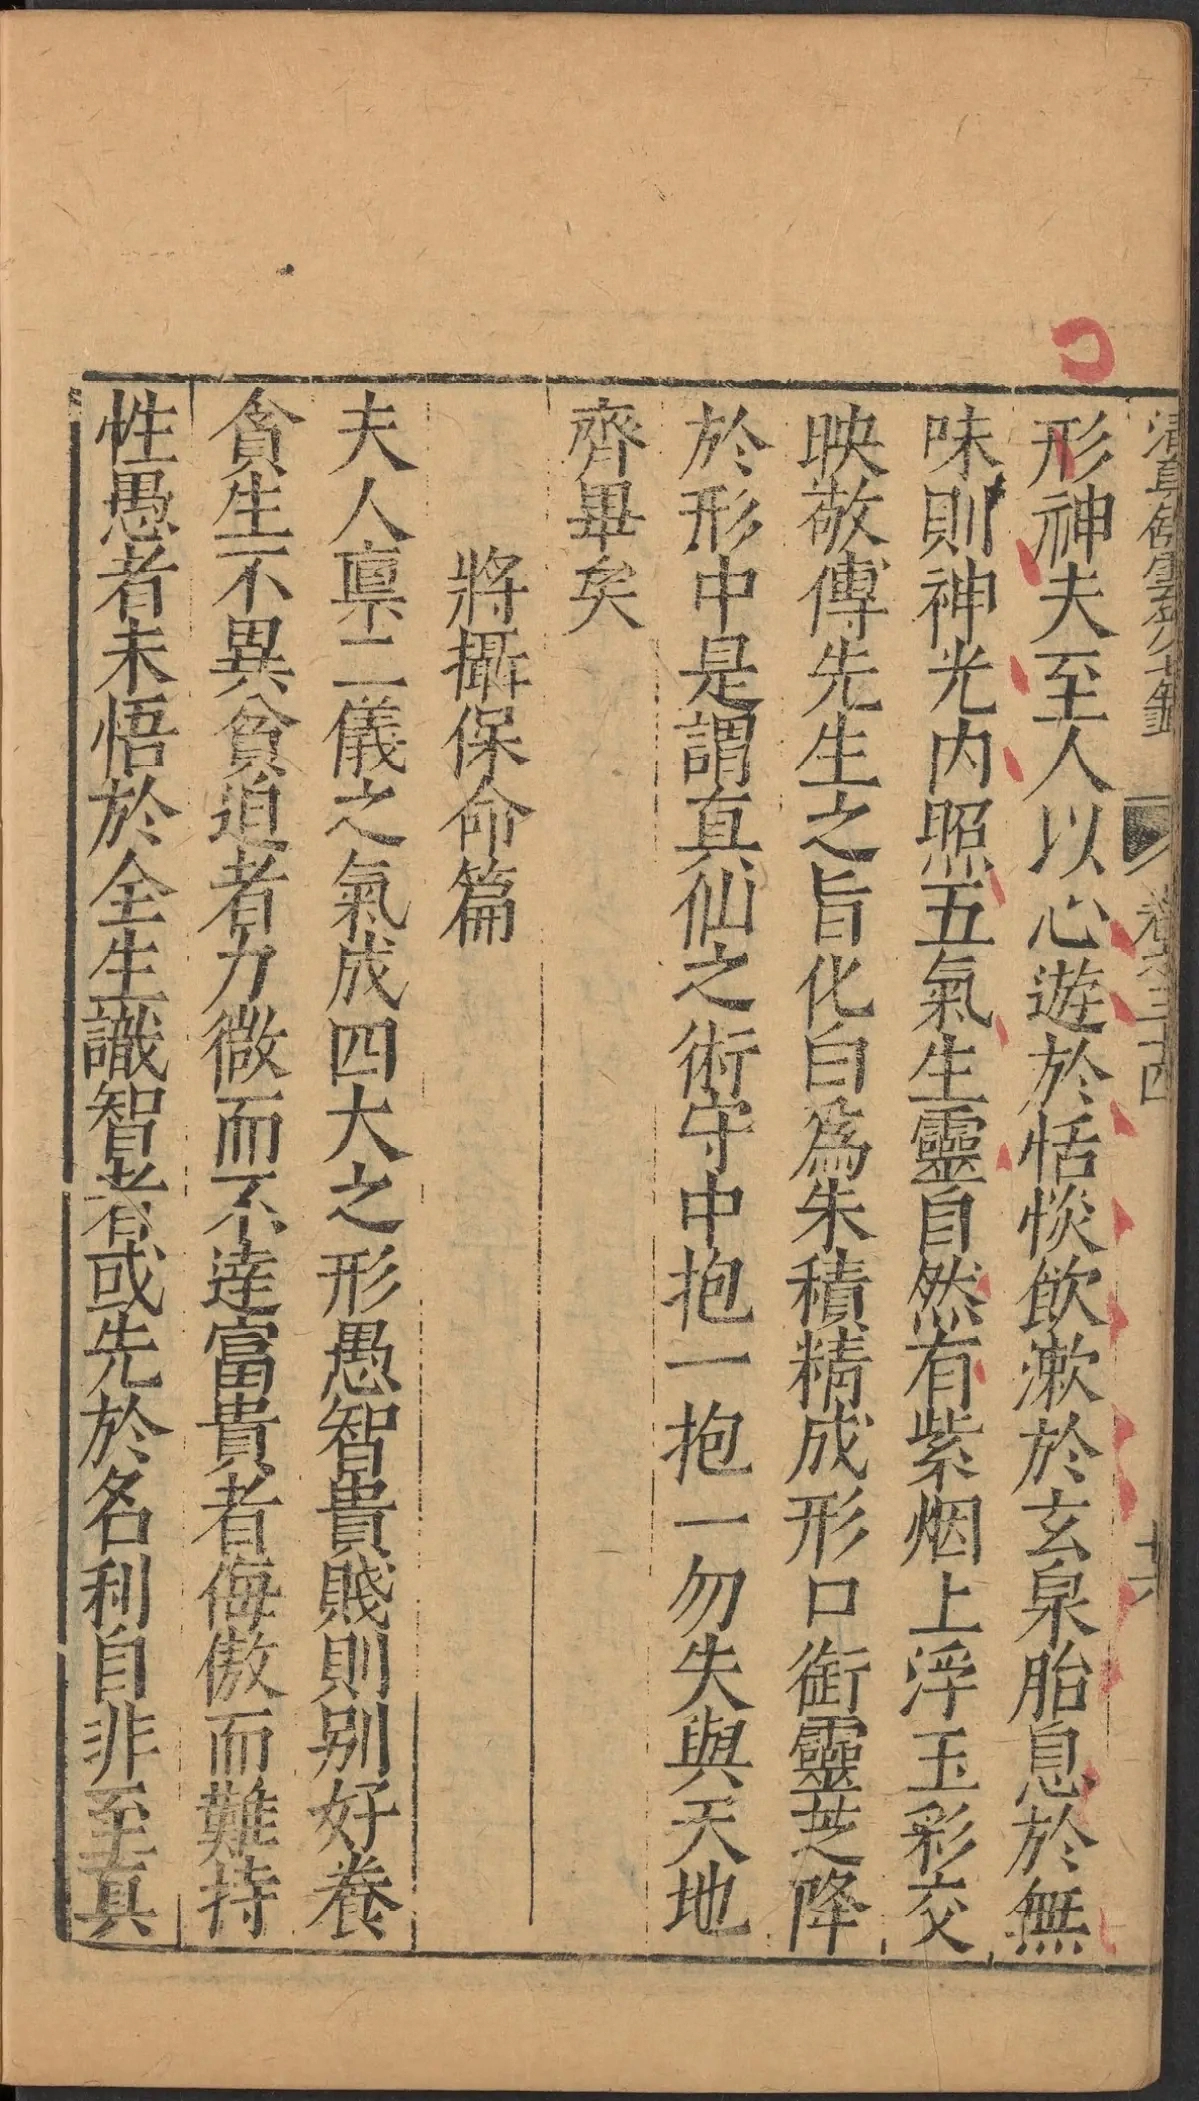 形神夫至人以心遊於恬惔飲漱於玄泉胎息於無
味則神光内照五氣生靈自然有紫烟上浮玉彩交
映故傳先生之旨化白為朱積精成形口銜靈芝降
於形中是謂真仙之術守中抱一抱一勿失與天地
齊畢矣
將攝保命篇
夫人禀二儀之氣成四大之形愚智貴賤則别好養
貪生不異貧迫者力微而不達富貴者侮傲而難持
性愚者未悟於全生識智者或先於名利自非至真